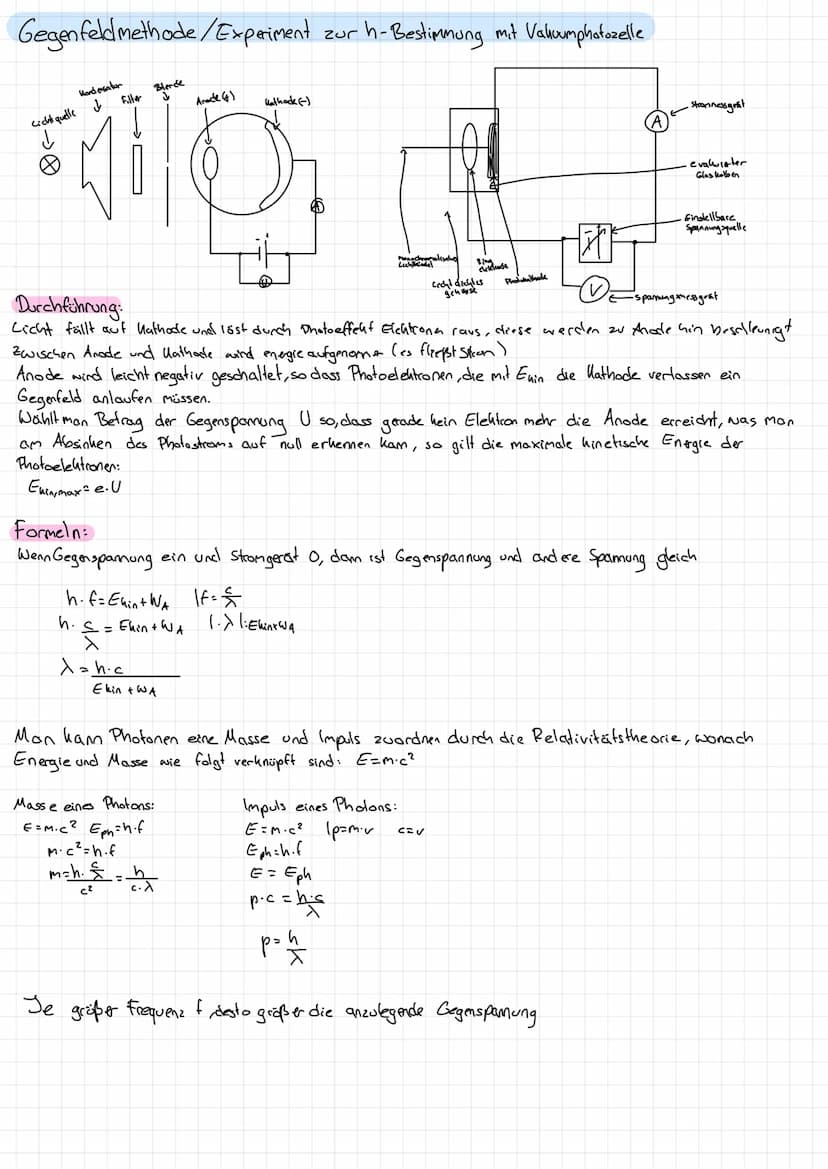 Gegenfeldmethode/Experiment zur h-Bestimmung mit Vakuumphotozelle
Lichtquelle
Kondensator
Filter
Blende
Anode (+)
Kathode (-)
A
U
Strommessgerät
A
evakuierter
Glaskolben
Einstellbare
Spannungsquelle
Monochromatisches
Lichtbündel
Ring
elektrode
Photokathode
Licht dichtes
gehäuse
V
Spannungsmessgerät
Durchführung:
Licht fällt auf Kathode und löst durch Photoeffekt Elektronen raus, diese werden zu Anode hin beschleunigt
zwischen Anode und Kathode wird energie aufgenomen (es fließt Strom)
Anode wird leicht negativ geschaltet, so dass Photoelektronen, die mit Ekin die Kathode verlassen ein
Gegenfeld anlaufen müssen.
Wählt man Betrag der Gegenspannung U so, dass gerade kein Elektron mehr die Anode erreicht, was man
am Absinken des Photostroms auf null erkennen kann, so gilt die maximale kinetische Energie der
Photoelektronen:
Ekin,max = e·U
Formeln:
Wenn Gegenspannung ein und Stromgerät 0, dann ist Gegenspannung und andere Spannung gleich
h·f = Ekin + WA |f = c/λ
h· c/λ = Ekin + WA |·λ |:Ekin+WA
λ = h·c / Ekin + WA
Man kann Photonen eine Masse und Impuls zuordnen durch die Relativitätstheorie, wonach
Energie und Masse wie folgt verknüpft sind: E=m·c²
Masse eines Photons:
E=m·c² Eph=h·f
m·c²=h·f
m = h· c/λ / c² = h / c·λ
Impuls eines Photons:
E=m·c² |p=m·v c=v
Eph=h·f
E = Eph
p·c = h·c / λ
p = h / λ
Je größer Frequenz f, desto größer die anzulegende Gegenspannung